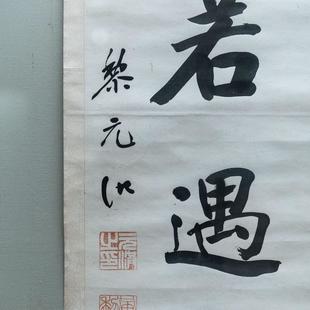 若遇
黎元洪